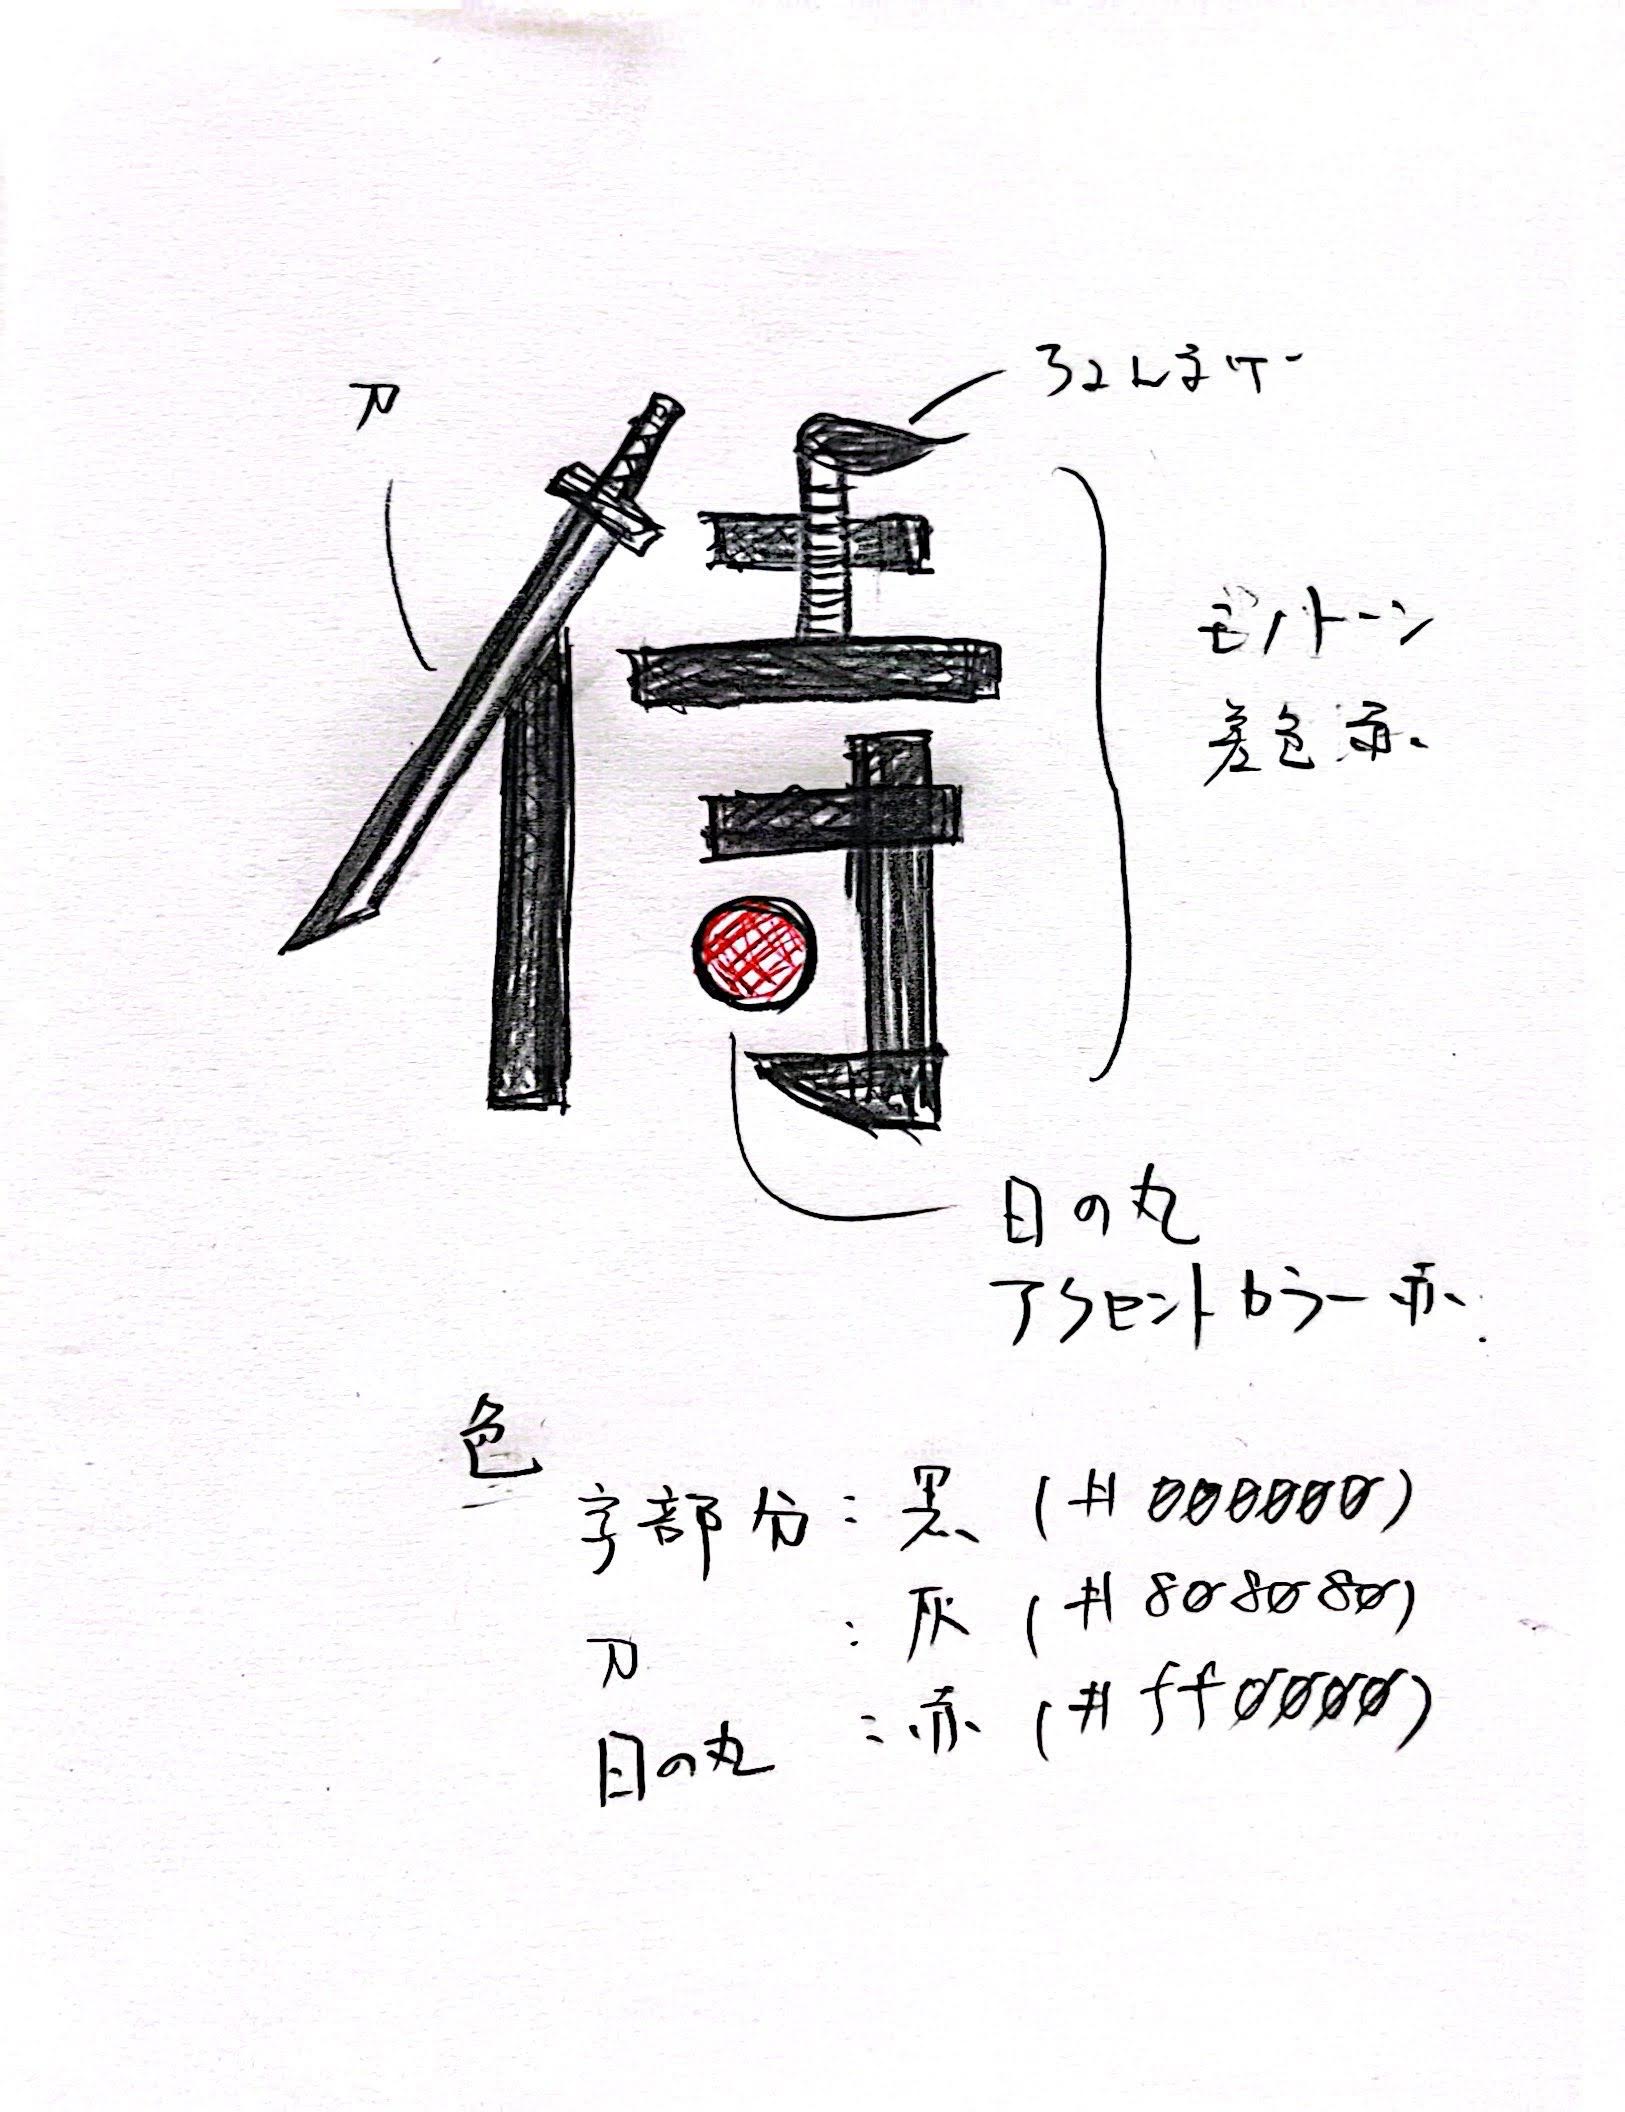 刀
ちょんまげ
侍
モノトーン
差色 赤
日の丸
アクセントカラー 赤
色
字部分：黒 (#000000)
刀：灰 (#808080)
日の丸：赤 (#ff0000)